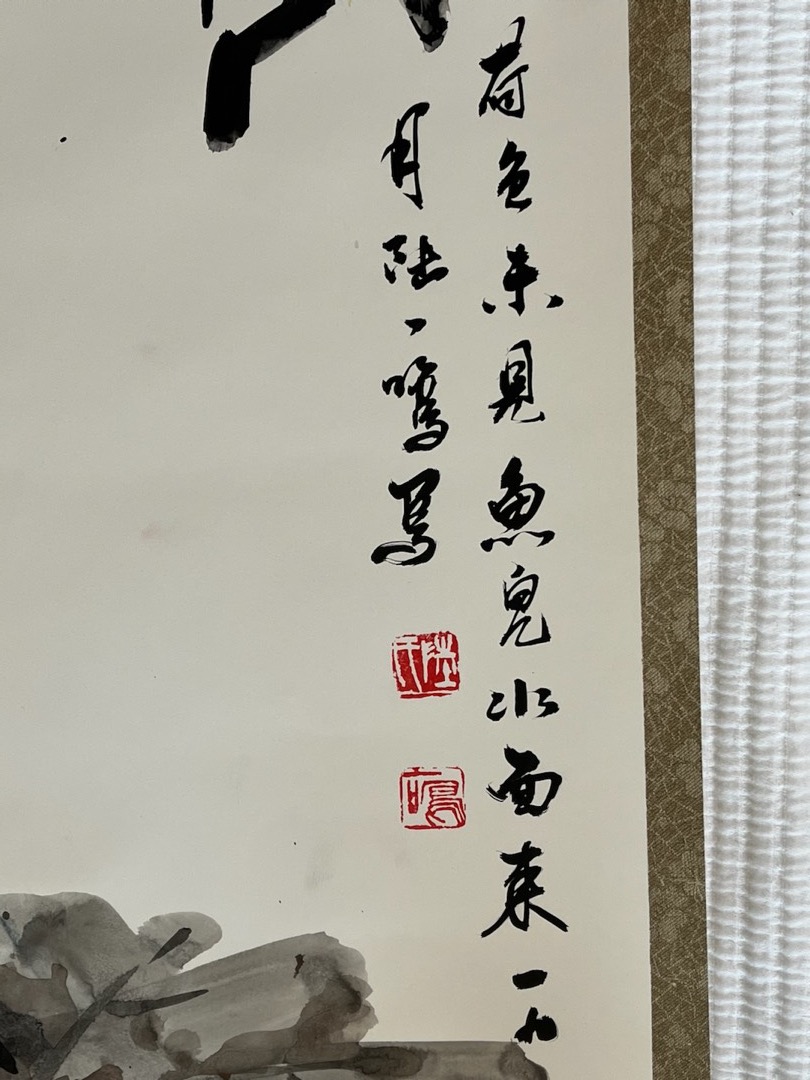 荷色未見魚兒水面來一九
月陸一鳴寫
陸氏
一鳴